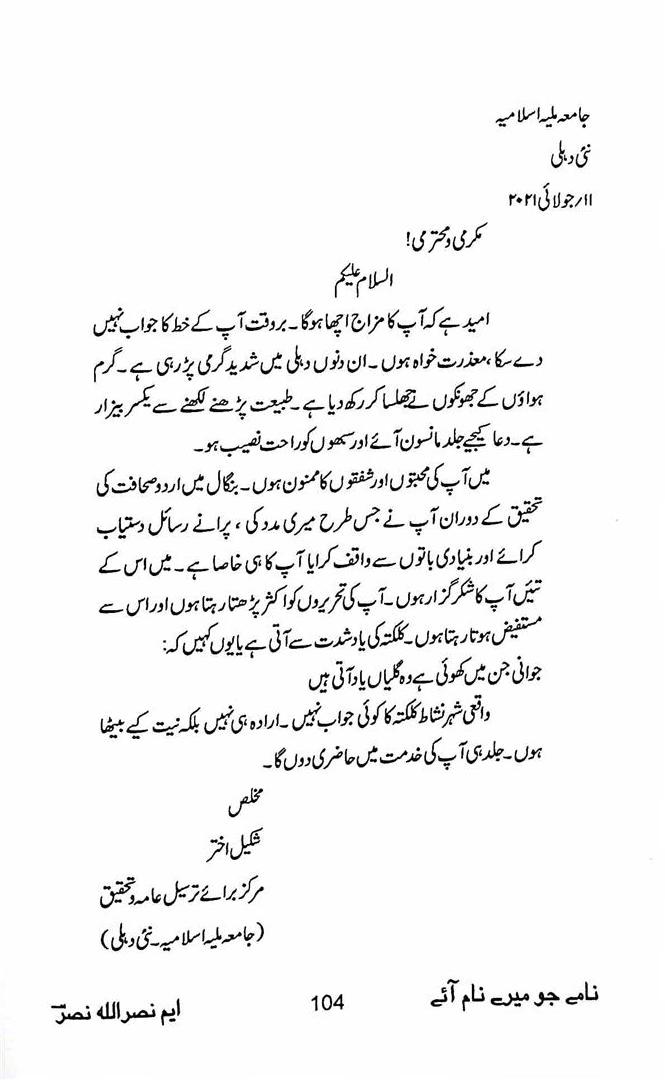 جامعہ ملیہ اسلامیہ
نئی دہلی
۱۱؍جولائی ۲۰۲۱
مکرمی و محترمی!
السلام علیکم
امید ہے کہ آپ کا مزاج اچھا ہوگا۔ بروقت آپ کے خط کا جواب نہیں
دے سکا، معذرت خواہ ہوں۔ ان دنوں دہلی میں شدید گرمی پڑ رہی ہے۔ گرم
ہواؤں کے جھونکوں نے جھلسا کر رکھ دیا ہے۔ طبیعت پڑھنے لکھنے سے یکسر بیزار
ہے۔ دعا کیجیے جلد مانسون آئے اور سبھوں کو راحت نصیب ہو۔
میں آپ کی محبتوں اور شفقوں کا ممنون ہوں۔ بنگال میں اردو صحافت کی
تحقیق کے دوران آپ نے جس طرح میری مدد کی ، پرانے رسائل دستیاب
کرائے اور بنیادی باتوں سے واقف کرایا آپ کا ہی خاصا ہے۔ میں اس کے
تئیں آپ کا شکر گزار ہوں۔ آپ کی تحریروں کو اکثر پڑھتا رہتا ہوں اور اس سے
مستفیض ہوتا رہتا ہوں۔ کلکتہ کی یاد شدت سے آتی ہے یا یوں کہیں کہ:
جوانی جن میں کھوئی ہے وہ گلیاں یاد آتی ہیں
واقعی شہر نشاط کلکتہ کا کوئی جواب نہیں۔ ارادہ ہی نہیں بلکہ نیت کیے بیٹھا
ہوں۔ جلد ہی آپ کی خدمت میں حاضری دوں گا۔
مخلص
شکیل اختر
مرکز برائے ترسیل عامہ و تحقیق
(جامعہ ملیہ اسلامیہ۔ نئی دہلی)
نامے جو میرے نام آئے 104 ایم نصر اللہ نصرؔ